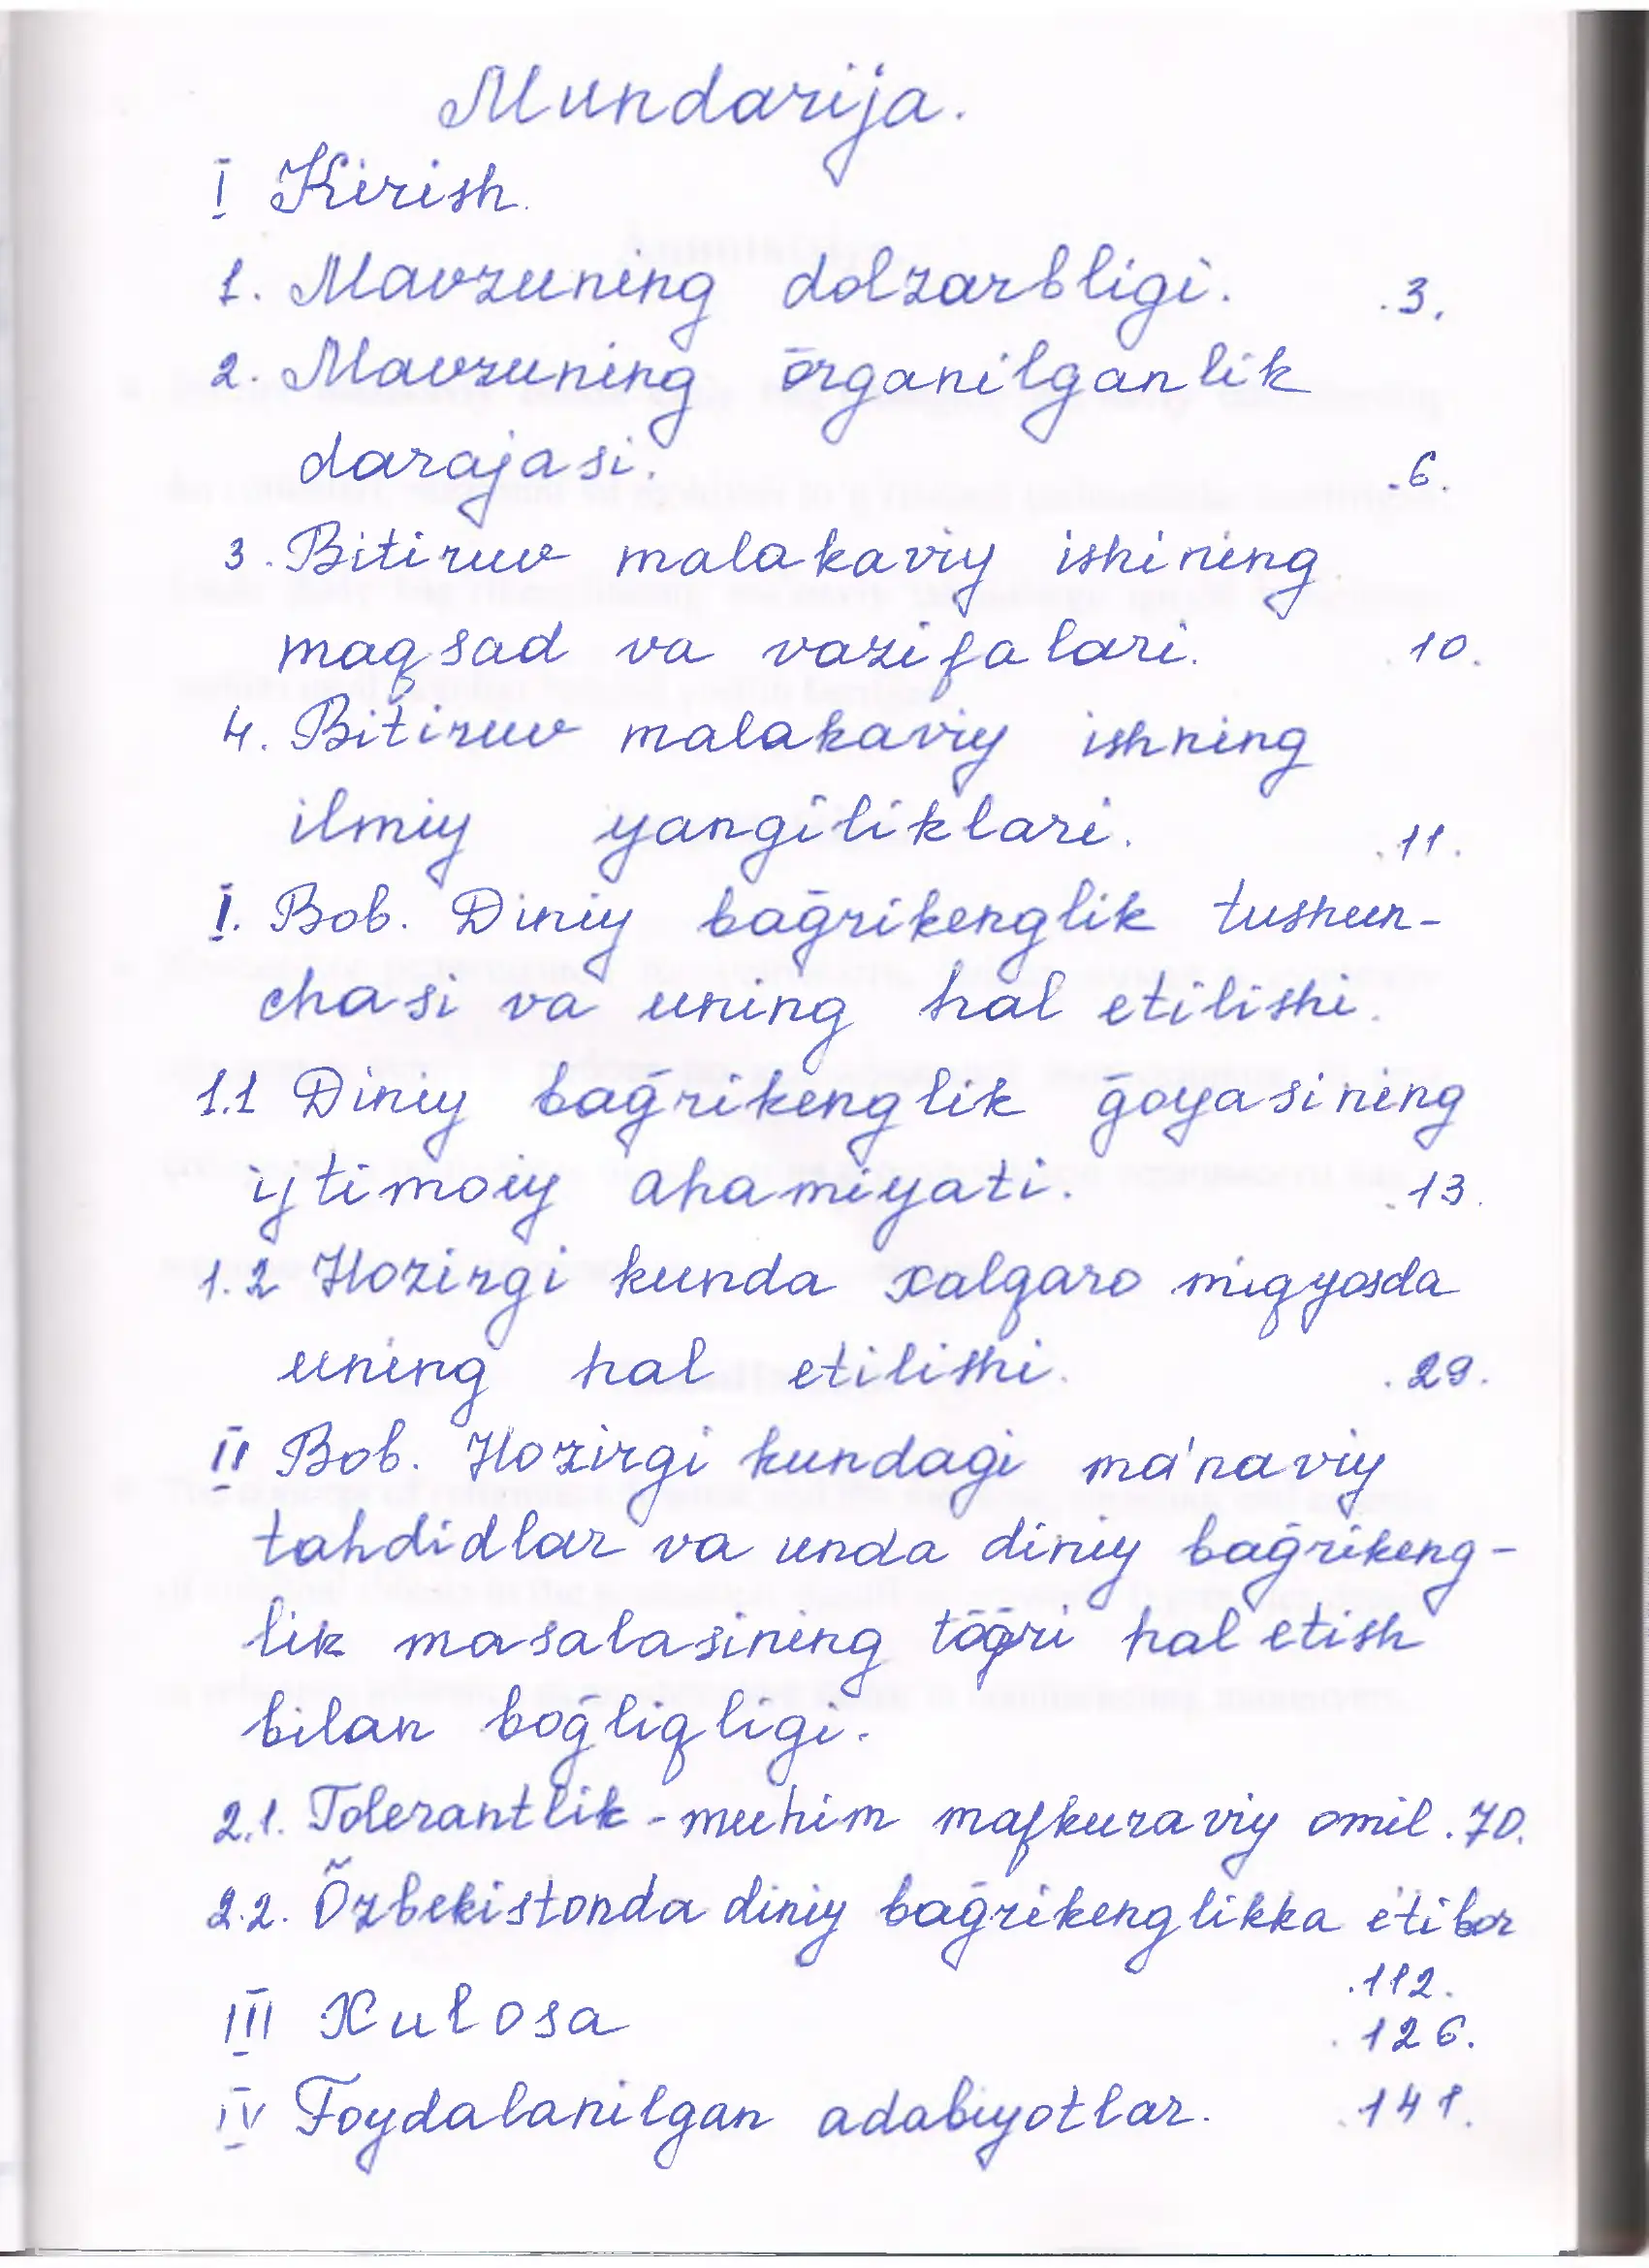 Mundarija.
I Kirish.
1. Mavzuning dolzarbligi. .3.
2. Mavzuning ōrganilganlik
darajasi. .6.
3. Bitiruv malakaviy ishining
maqsad va vazifalari. 10.
4. Bitiruv malakaviy ishning
ilmiy yangiliklari. .11.
I. Bob. Diniy baḡrikenglik tushun-
chasi va uning hal etilishi.
1.1 Diniy baḡrikenglik ḡoyasining
ijtimoiy ahamiyati. .13.
1.2 Hozirgi kunda xalqaro miqyosda
uning hal etilishi. .29.
II Bob. Hozirgi kundagi ma'naviy
tahdidlar va unda diniy baḡrikeng-
lik masalasining tōḡri hal etish
bilan boḡliqligi.
2.1. Tolerantlik - muhim mafkuraviy omil .70.
2.2. Õzbekistonda diniy baḡrikenglikka e'tibor
.112.
III Xulosa .126.
IV Foydalanilgan adabiyotlar. .141.